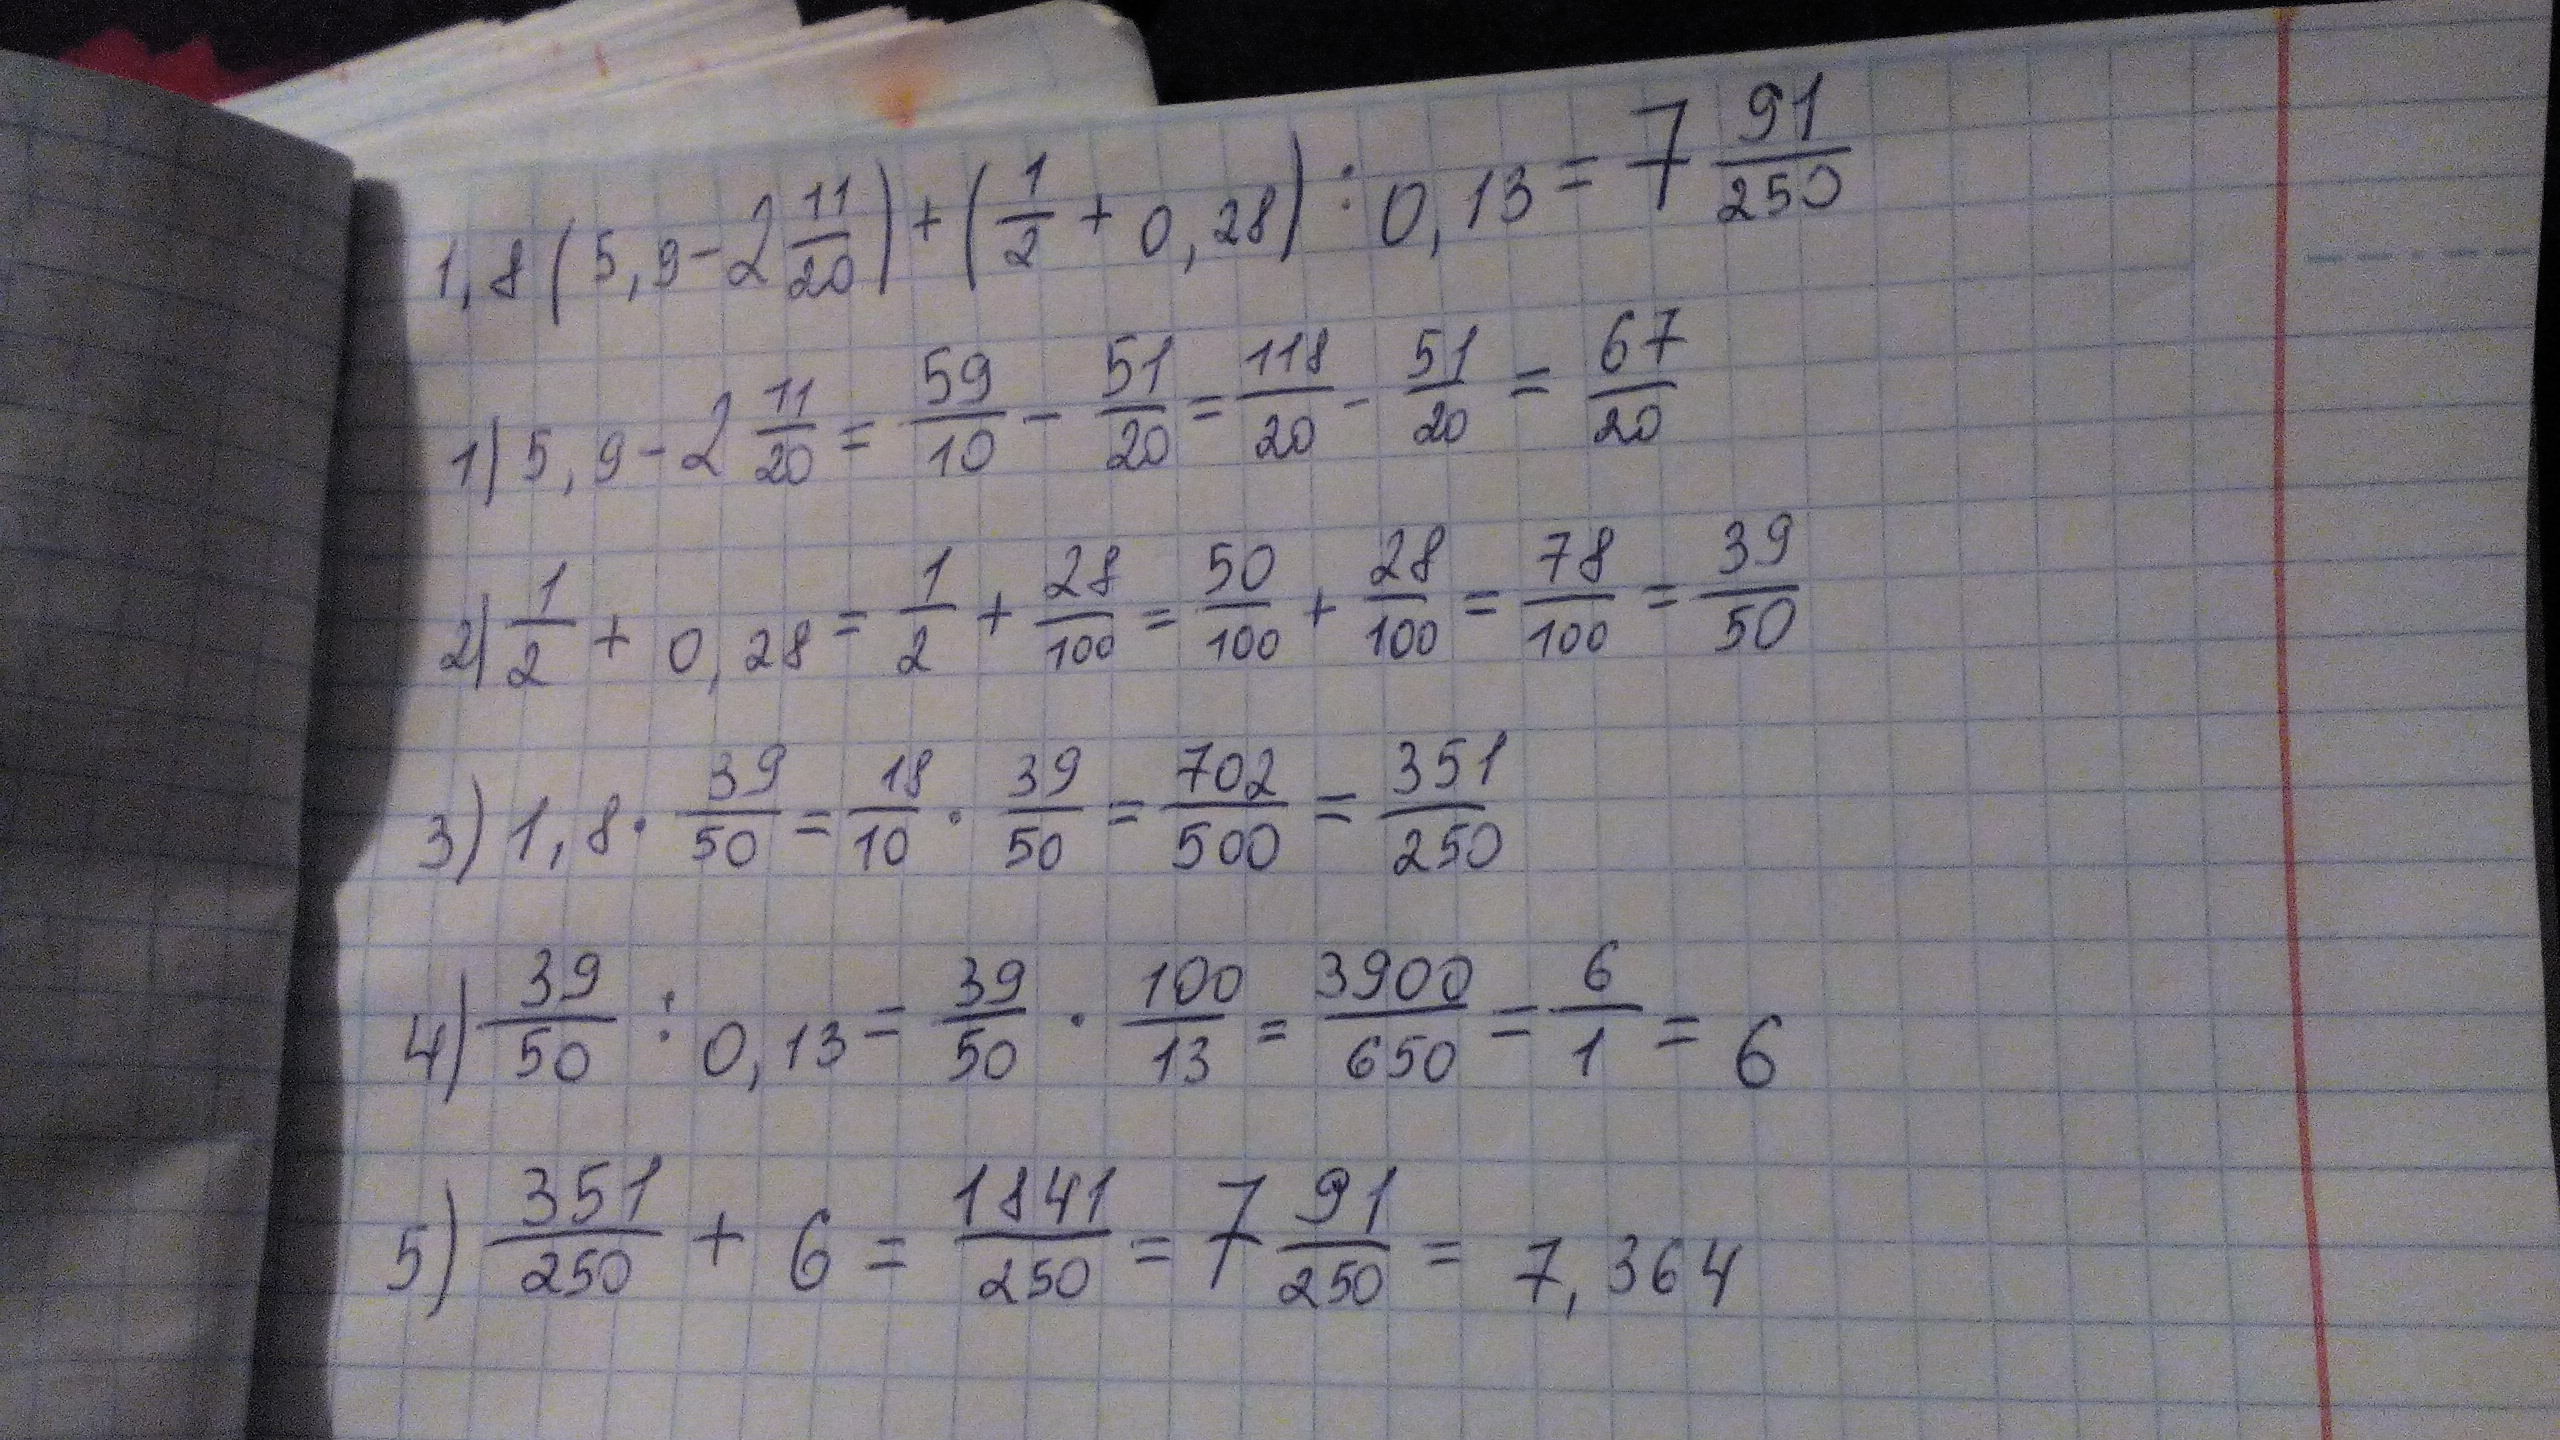 1,8(5,9-2 11/20)+(1/2+0,28):0,13=7 91/250
1) 5,9-2 11/20=59/10-51/20=118/20-51/20=67/20
2) 1/2+0,28=1/2+28/100=50/100+28/100=78/100=39/50
3) 1,8·39/50=18/10·39/50=702/500=351/250
4) 39/50:0,13=39/50·100/13=3900/650=6/1=6
5) 351/250+6=1841/250=7 91/250=7,364